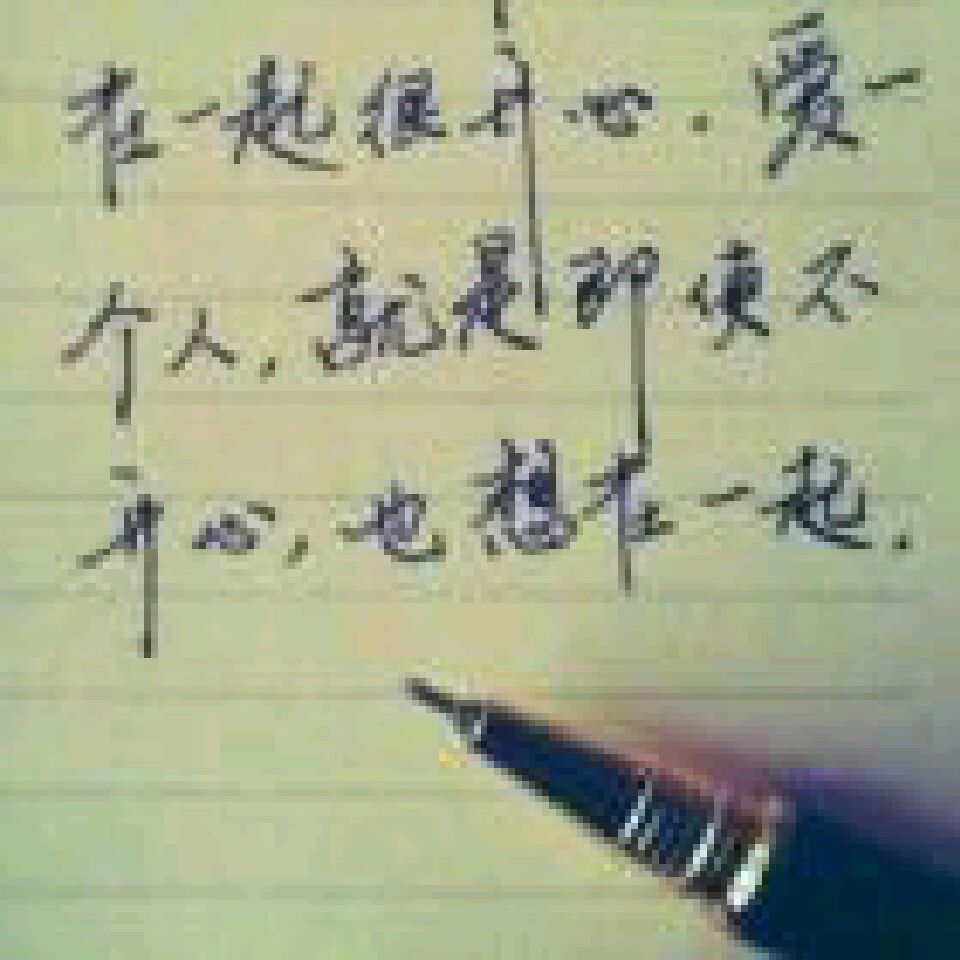 在一起很开心.爱一
个人,就是即便不
开心,也想在一起.